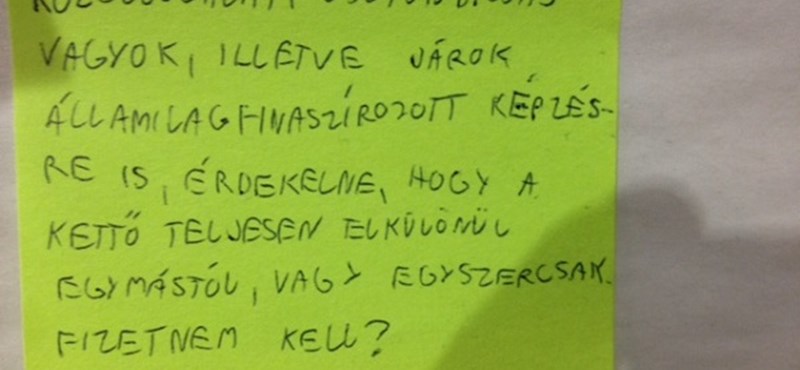 VAGYOK, ILLETVE JÁROK
ÁLLAMILAGFINASZÍROZOTT KÉPZÉS-
RE IS, ÉRDEKELNE, HOGY A
KETTŐ TELJESEN ELKÜLÖNÜL
EGYMÁSTÓL, VAGY EGYSZERCSAK
FIZETNEM KELL?